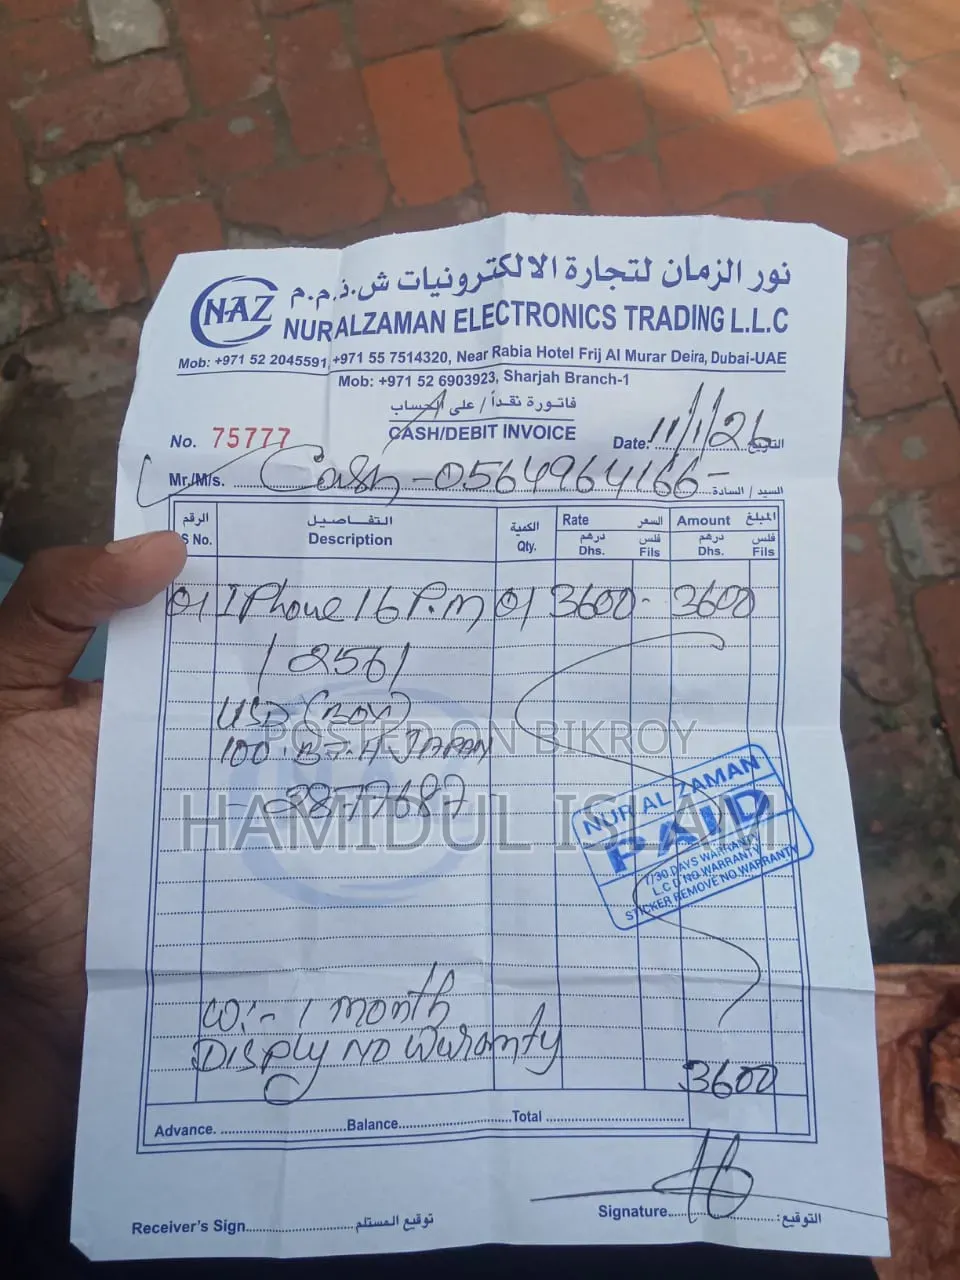 نور الزمان لتجارة الالكترونيات ش.ذ.م.م
NAZ
NURALZAMAN ELECTRONICS TRADING L.L.C
Mob: +971 52 2045591, +971 55 7514320, Near Rabia Hotel Frij Al Murar Deira, Dubai-UAE
Mob: +971 52 6903923, Sharjah Branch-1
فاتورة نقداً / على الحساب
CASH/DEBIT INVOICE
No. 75777
Date: 11/1/26 التاريخ
Mr./M/s. Cash - 0564964166 - السيد / السادة
الرقم التفــاصـيل الكمية Rate السعر Amount المبلغ
S No. Description Qty. درهم Dhs. فلس Fils درهم Dhs. فلس Fils
01 I Phone 16 P.M 01 3600 - 3600
/ 256 /
USD (BOX)
POSTED ON BIKROY
100 . B-T-H JAPAN
- 3877687
HAMIDUL ISLAM
NUR AL ZAMAN
PAID
7/30 DAYS WARRANTY
L.C.D NO.WARRANTY
STICKER REMOVE NO.WARRANTY
W:- 1 month
Disply no warranty
3600
Advance. Balance. Total
Receiver's Sign. توقيع المستلم
Signature. التوقيع: